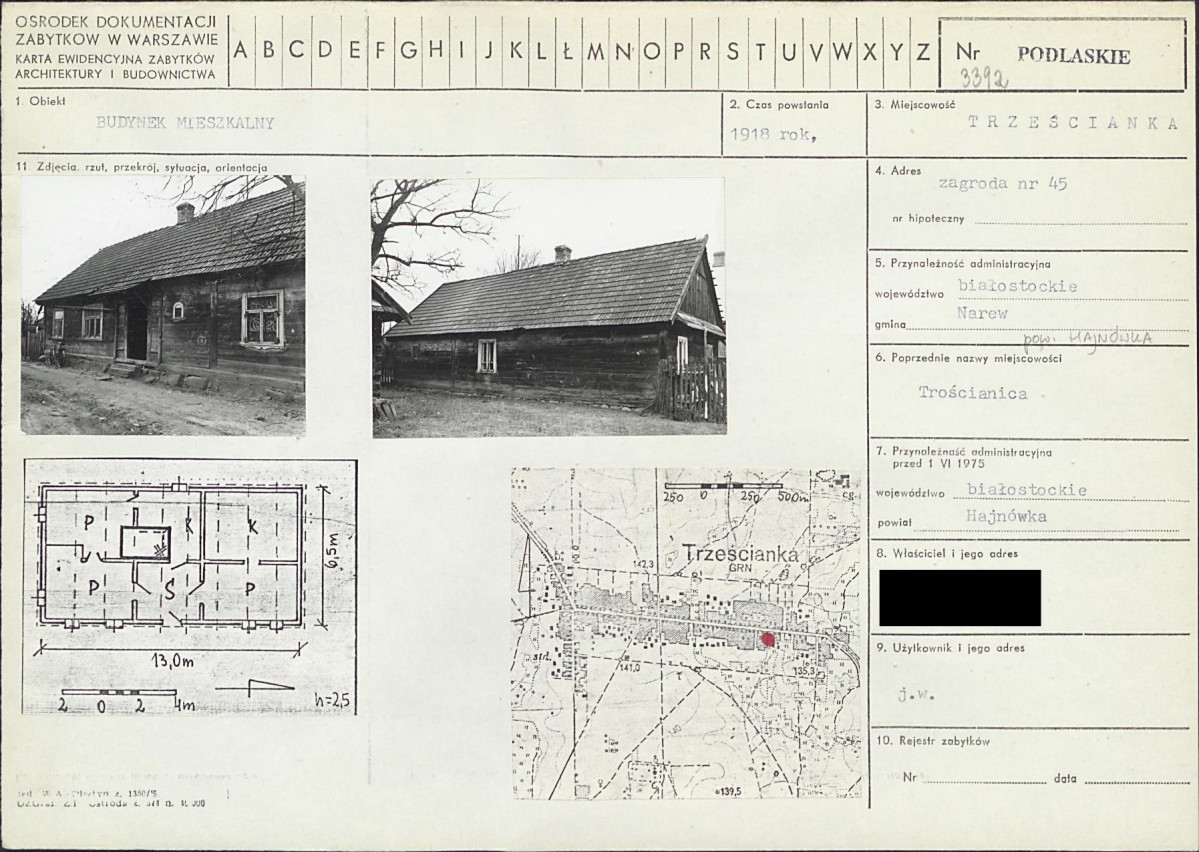 OŚRODEK DOKUMENTACJI
ZABYTKÓW W WARSZAWIE
KARTA EWIDENCYJNA ZABYTKÓW
ARCHITEKTURY I BUDOWNICTWA
A B C D E F G H I J K L Ł M N O P R S T U V W X Y Z
Nr PODLASKIE
3392
1. Obiekt
BUDYNEK MIESZKALNY
2. Czas powstania
1918 rok,
3. Miejscowość
TRZEŚCIANKA
11. Zdjęcia, rzut, przekrój, sytuacja, orientacja
4. Adres
zagroda nr 45
nr hipoteczny
5. Przynależność administracyjna
województwo białostockie
gmina Narew
pow. HAJNÓWKA
6. Poprzednie nazwy miejscowości
Trościanica
7. Przynależność administracyjna
przed 1 VI 1975
województwo białostockie
powiat Hajnówka
8. Właściciel i jego adres
9. Użytkownik i jego adres
j.w.
10. Rejestr zabytków
Nr data
P K K
P S P
6,5m
13,0m
2 0 2 4m
h=2,5
250 0 250 500m
cg.
Trześcianka
GRN
142,3
std.
141,0
135,3
139,5